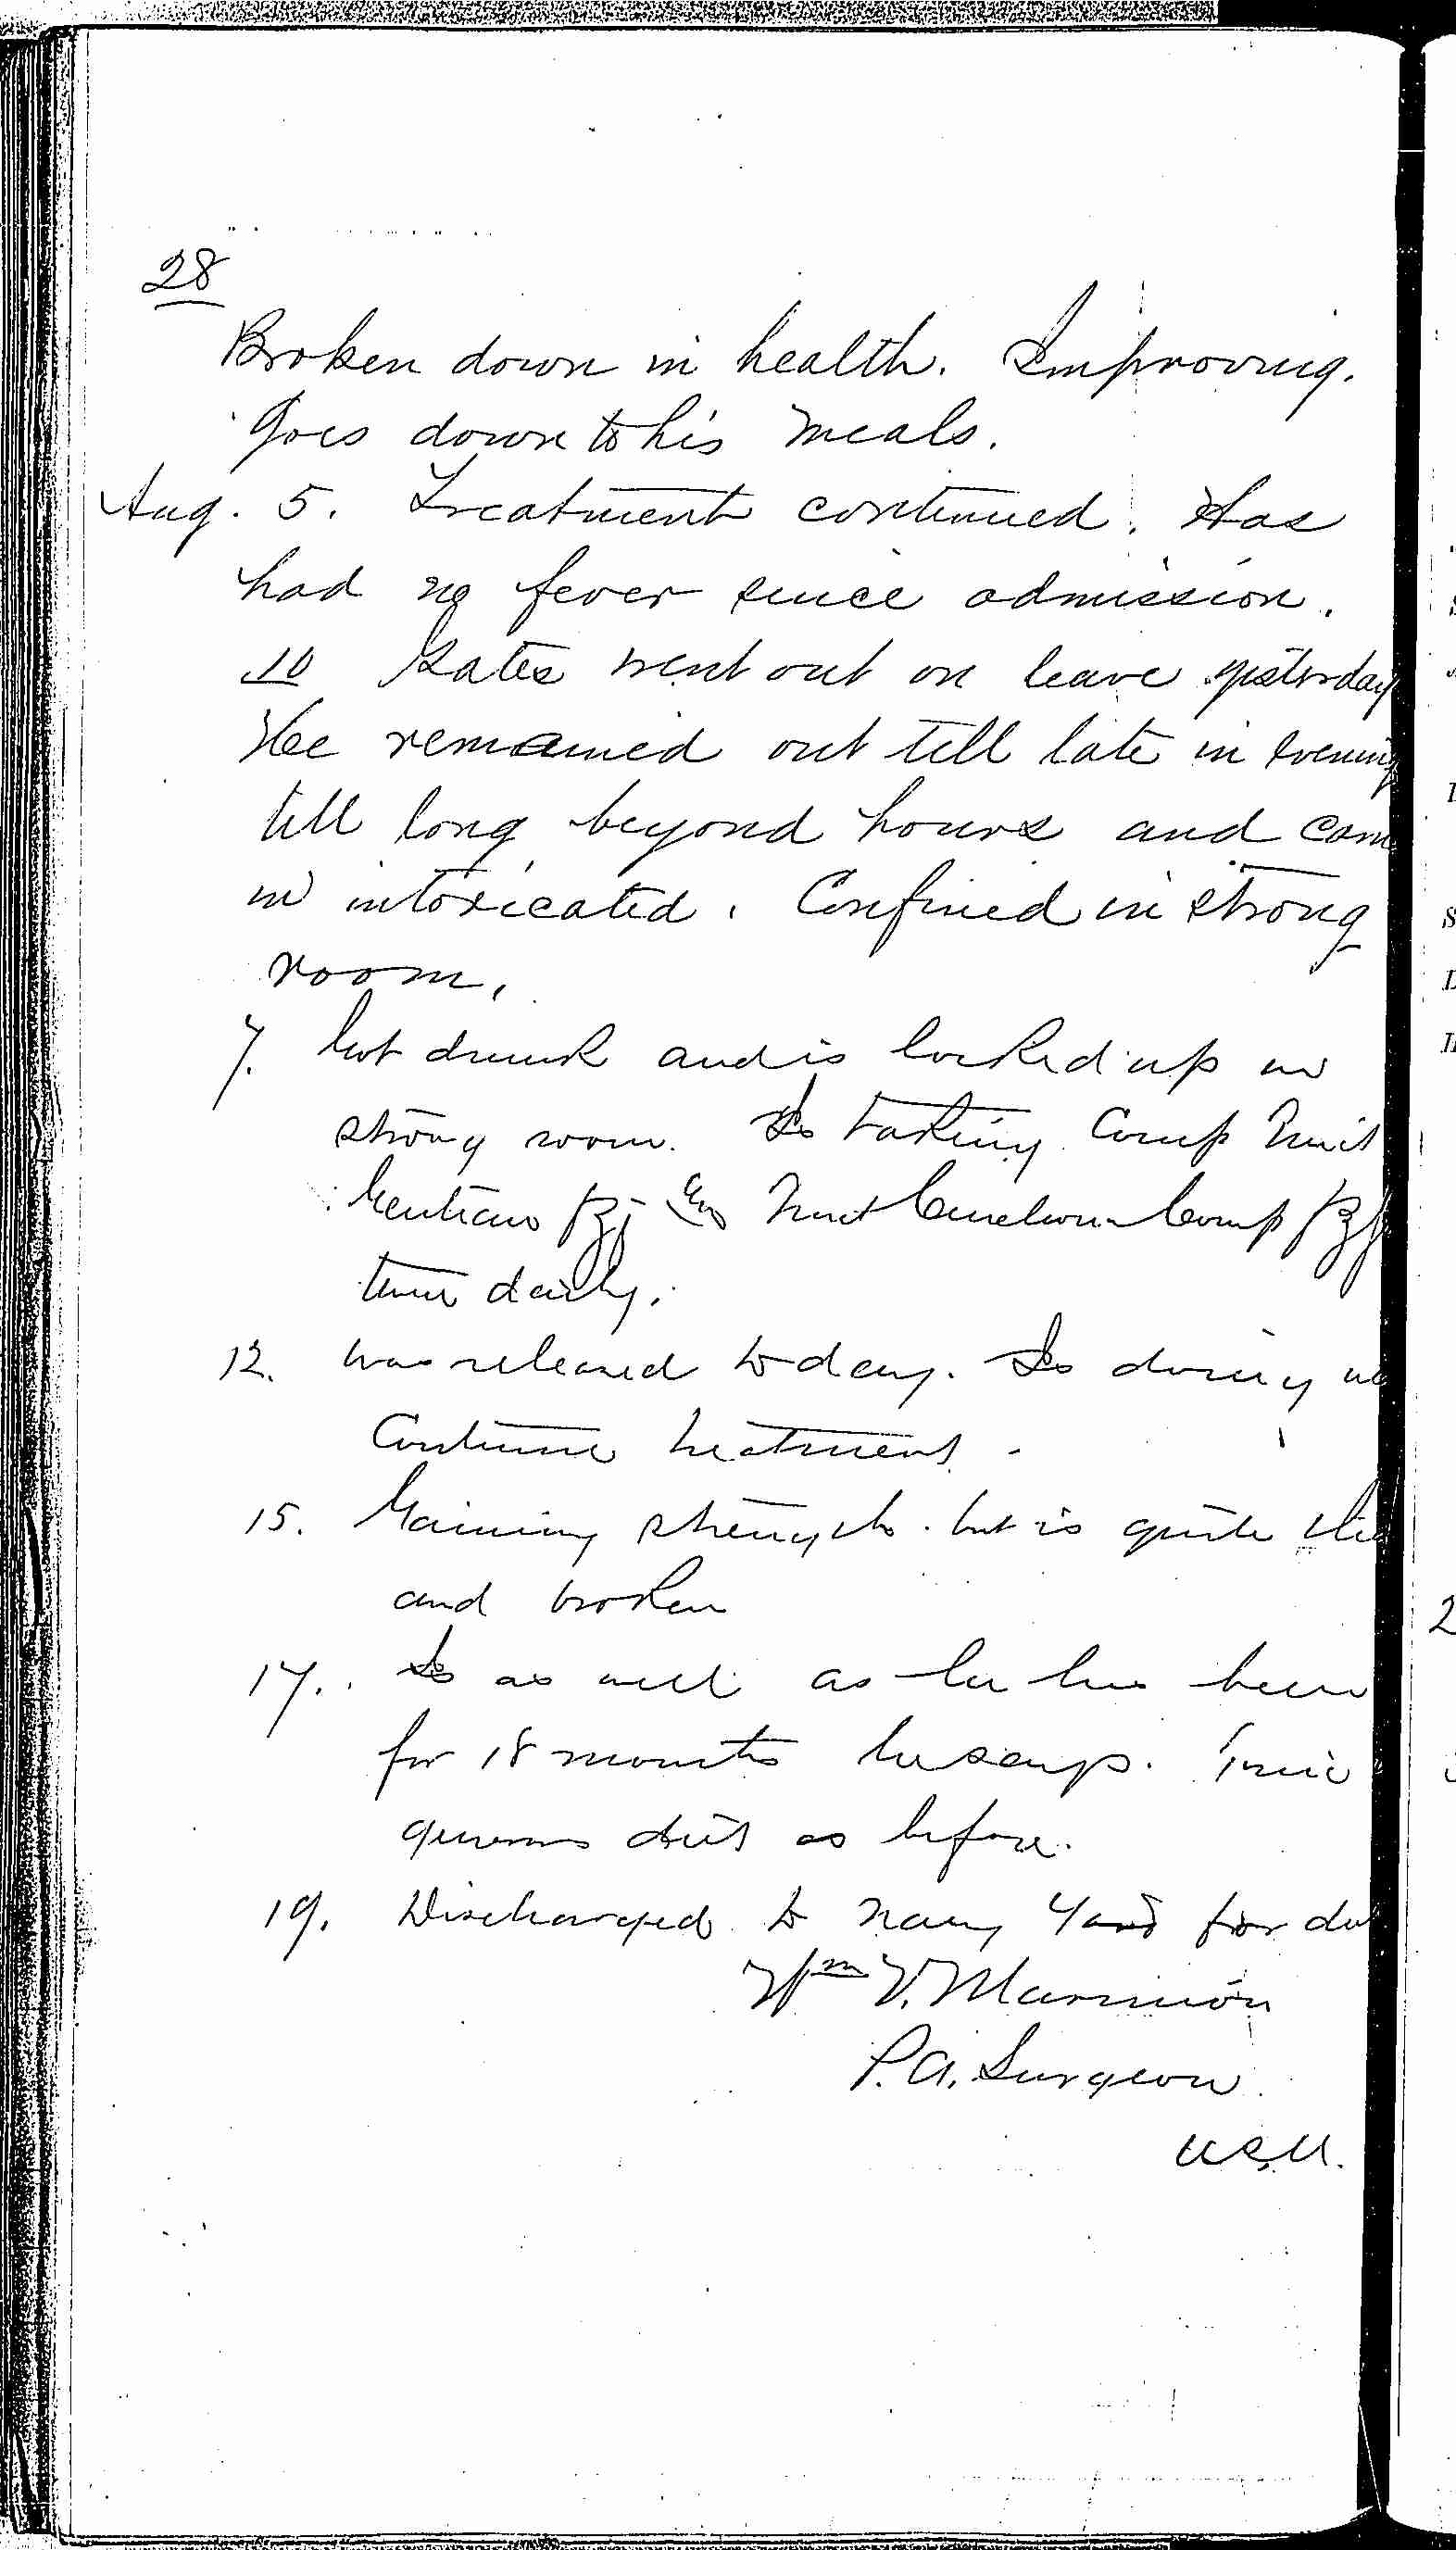 28
Broken down in health. Improving.
Goes down to his meals.
Aug. 5. Treatment continued. Has
had no fever since admission.
10 Gates went out on leave yesterday
He remained out till late in evening
till long beyond hours and came
in intoxicated. Confined in strong
room.
7. Got drunk and is locked up in
strong room. Is taking Comp Tinct
Gentian Comp
daily.
12. Was released to day. Is doing
Continue treatment.
15. Gaining strength. but is quite
and broken
17. Is as well as he has been
for 18 months he says.
generous diet as before.
19. Discharged to Navy Yard for
Wm V. Marmion
P.A. Surgeon
U.S.N.